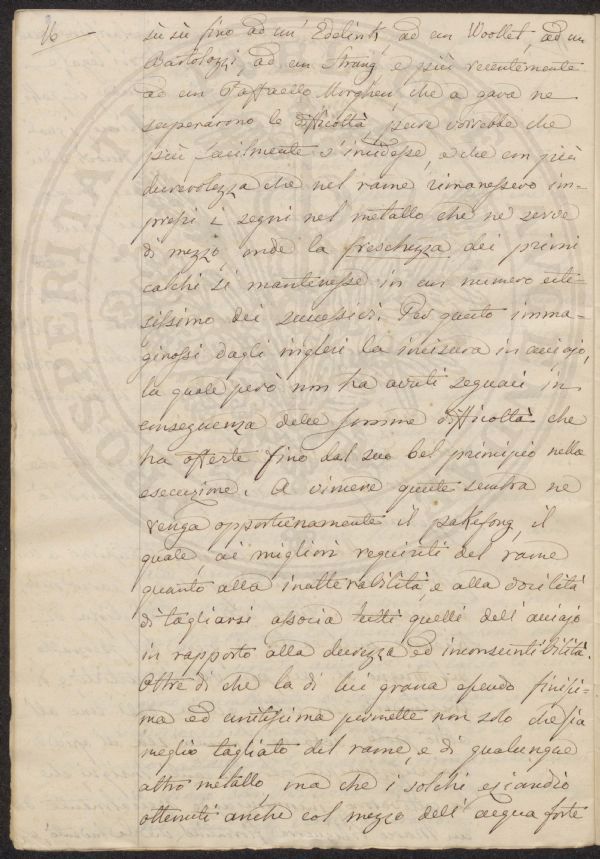 16
sù sù fino ad un' Edelink, ad un Woollet, ad un
Bartolozzi, ad un Strang e più recentemente
ad un Raffaello Morghen, che a gara ne
superarono le difficoltà, pure vorrebbe che
più facilmente s'incidesse, e che con più
durevolezza che nel rame rimanessero im-
pressi i segni nel metallo che ne serve
di mezzo, onde la freschezza dei primi
calchi si mantenesse in un numero este-
sissimo dei successivi. Per questo imma-
ginossi dagli inglesi la incisura in acciajo,
la quale però non ha avuti seguaci in
conseguenza delle somme difficoltà che
ha offerte fino dal suo bel principio nella
esecuzione. A vincere queste sembra ne
venga opportunamente il pakfong, il
quale, ai migliori requisiti del rame
quanto alla inalterabilità, e alla docilità
di tagliarsi associa tutti quelli dell'acciajo
in rapporto alla durezza ed inconsuntibilità.
Oltre di che la di lui grana essendo finissi-
ma ed unitissima permette non solo che sia
meglio tagliato del rame, e di qualunque
altro metallo, ma che i solchi eziandio
ottenuti anche col mezzo dell'acqua forte
PROSPERITATI